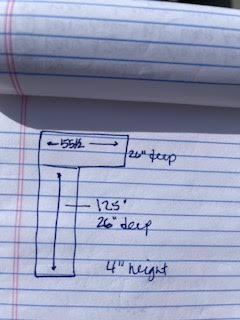 55½
26" deep
125"
26" deep
4" height